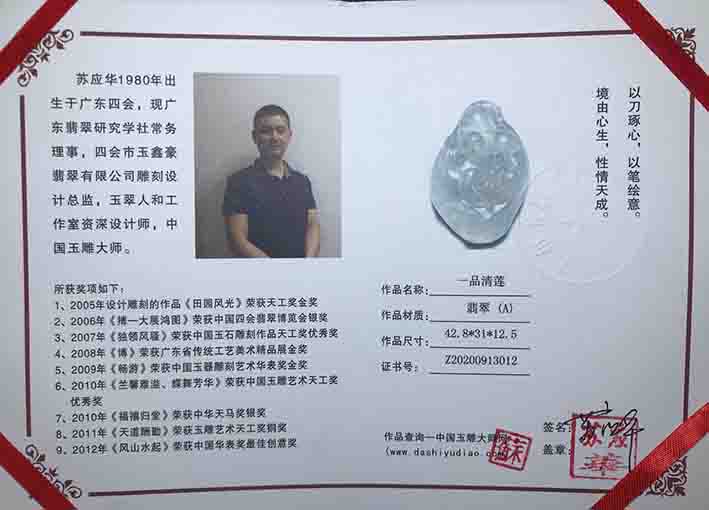 苏应华1980年出
生于广东四会，现广
东翡翠研究学社常务
理事，四会市玉鑫豪
翡翠有限公司雕刻设
计总监，玉翠人和工
作室资深设计师，中
国玉雕大师。
所获奖项如下：
1、2005年设计雕刻的作品《田园风光》荣获天工奖金奖
2、2006年《搏一大展鸿图》荣获中国四会翡翠博览会银奖
3、2007年《独领风骚》荣获中国玉石雕刻作品天工奖优秀奖
4、2008年《博》荣获广东省传统工艺美术精品展金奖
5、2009年《畅游》荣获中国玉器雕刻艺术华表奖金奖
6、2010年《兰馨雅溢、蝶舞芳华》荣获中国玉雕艺术天工奖
优秀奖
7、2010年《福禧归堂》荣获中华天马奖银奖
8、2011年《天道酬勤》荣获玉雕艺术天工奖铜奖
9、2012年《风山水起》荣获中国华表奖最佳创意奖
以刀琢心，以笔绘意。
境由心生，性情天成。
作品名称： 一品清莲
作品材质： 翡翠 (A)
作品尺寸： 42.8*31*12.5
证书号： Z20200913012
作品查询—中国玉雕大师网
(www.dashiyudiao.com)
签名：
盖章：